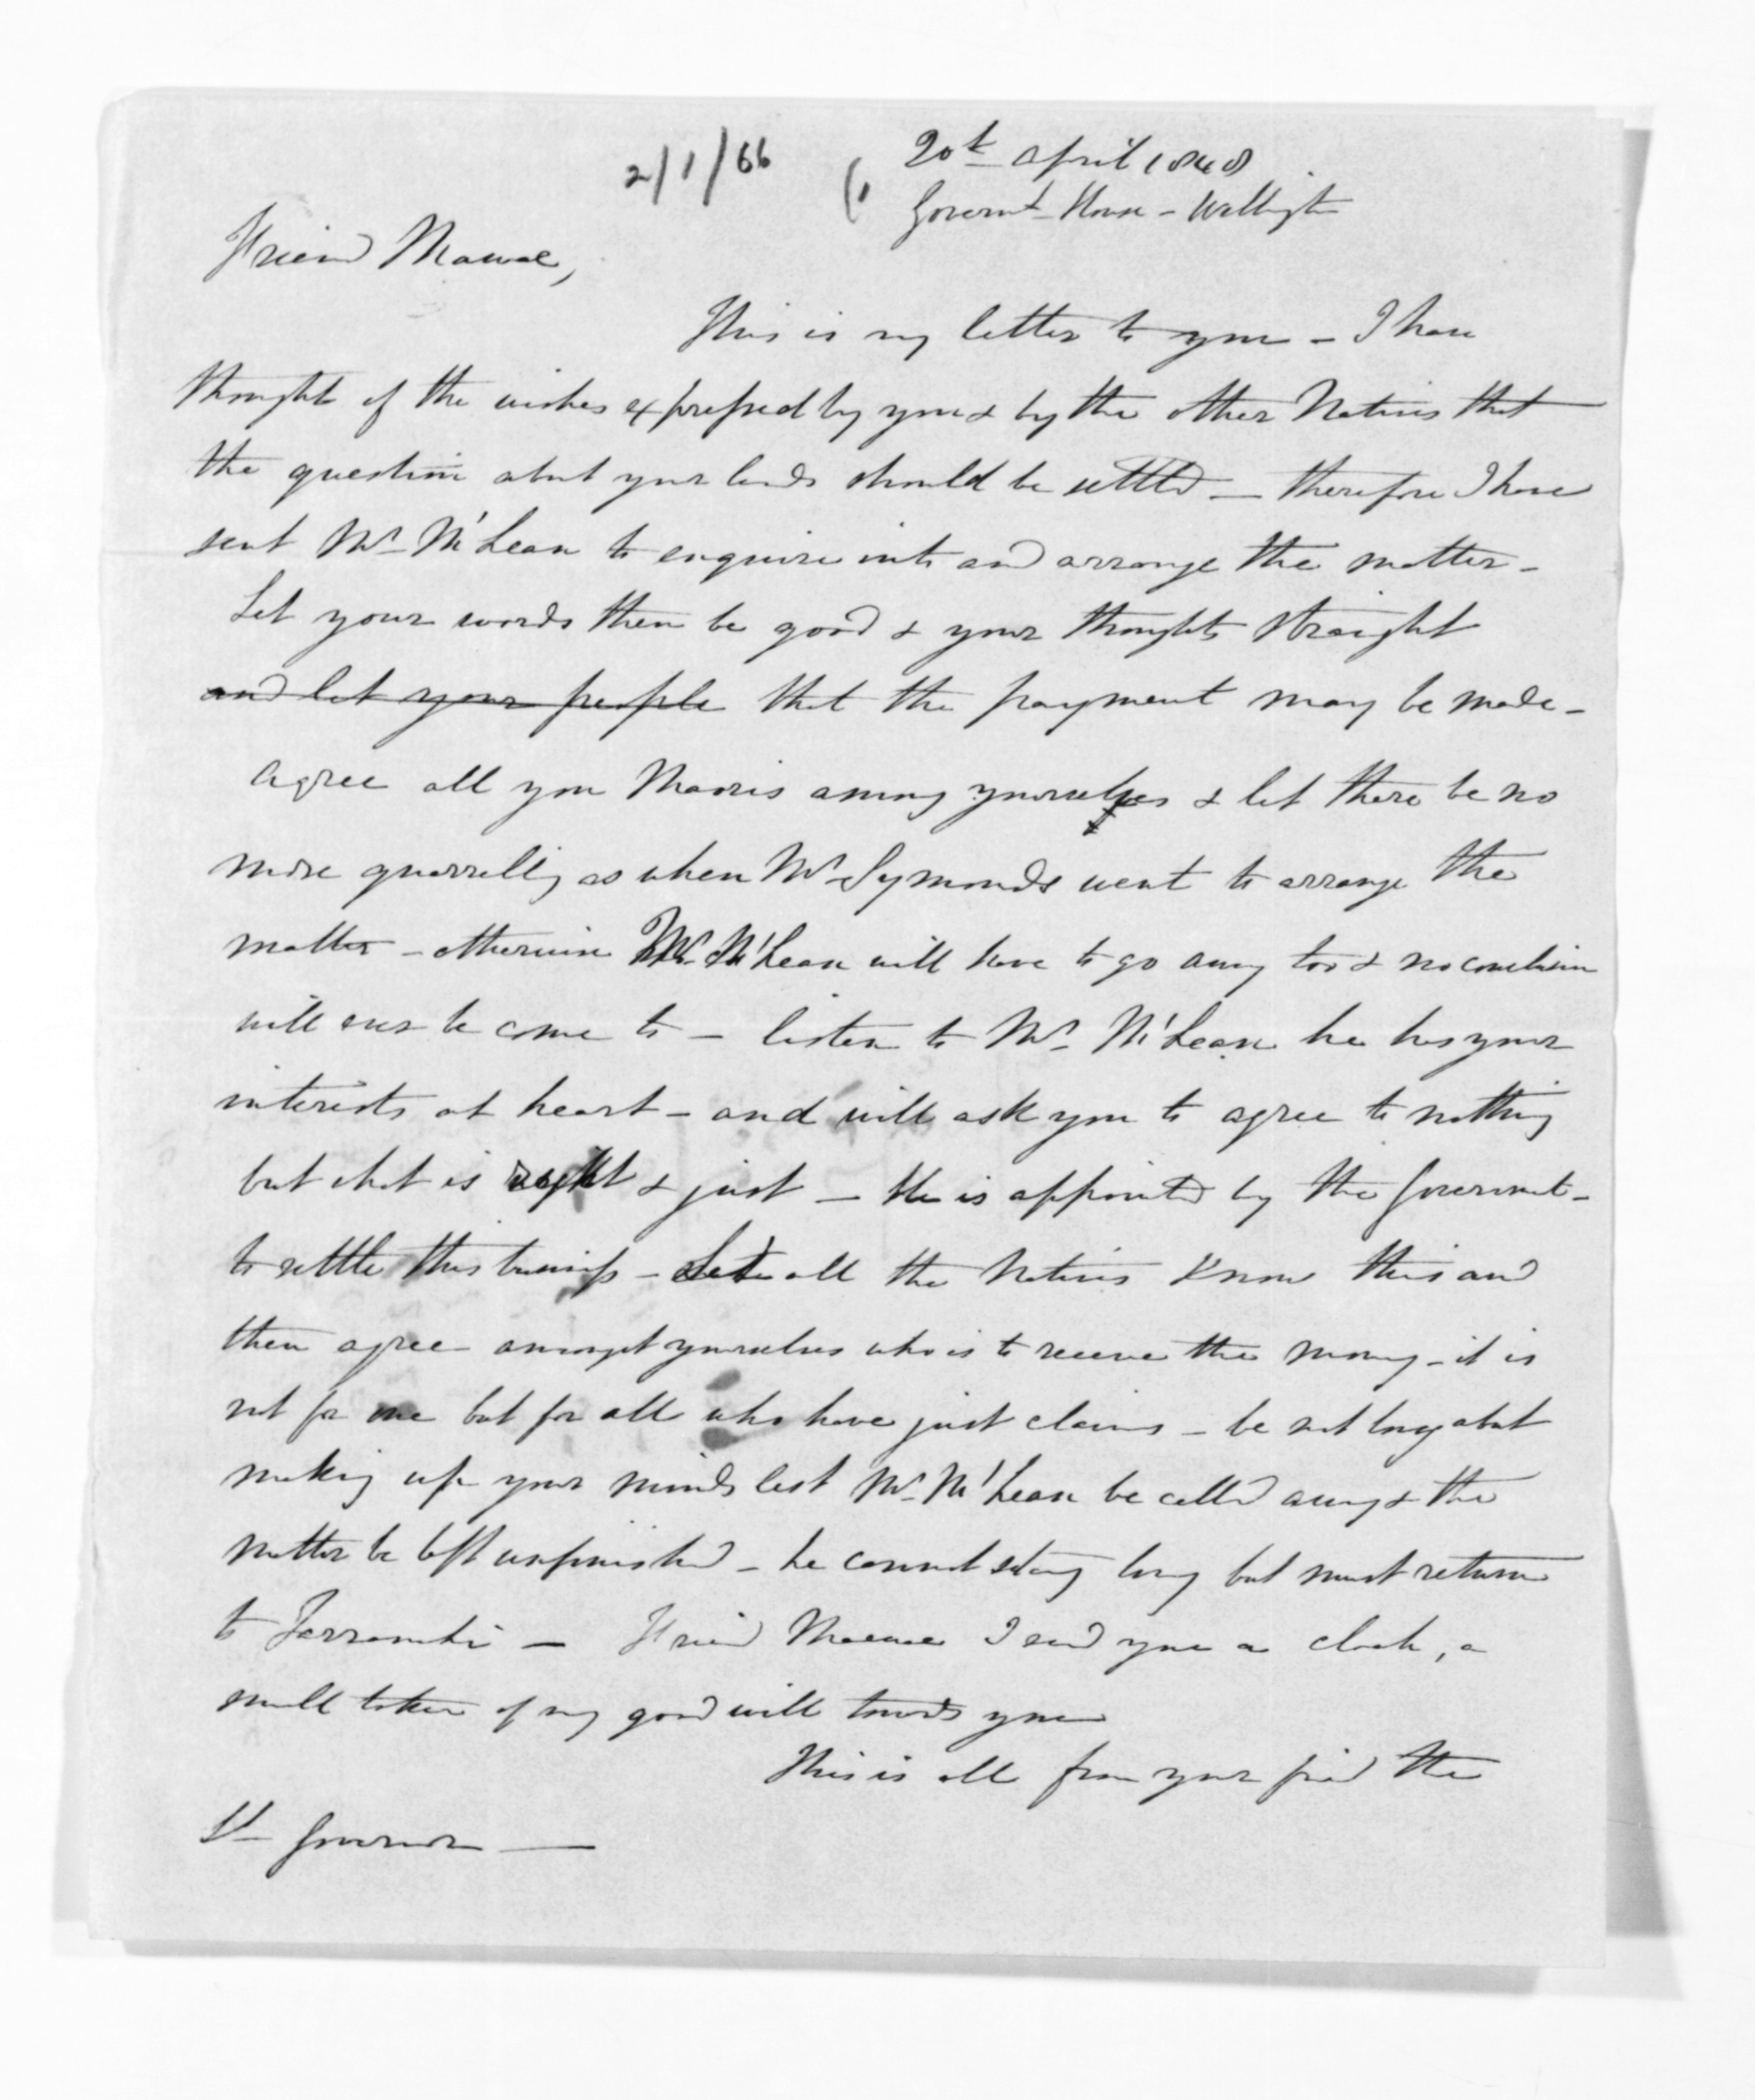 2/1/66
20th April 1848
Governt House - Wellington
Friend Mawae,
This is my letter to you - I have
thought of the wishes expressed by you & by the other Natives that
the question about your lands should be settled - therefore I have
sent Mr. McLean to enquire into and arrange the matter -
Let your words then be good & your thoughts straight
and let your people that the payment may be made -
Agree all you Maoris among yourselves & let there be no
more quarrelling as when Mr Symonds went to arrange the
matter - otherwise Mr. McLean will have to go away too & no conclusion
will ever be come to - listen to Mr. McLean he has your
interests at heart - and will ask you to agree to nothing
but what is right & just - He is appointed by the Government -
to settle this business - Let all the Natives know this and
then agree amongst yourselves who is to receive the money - it is
not for one but for all who have just claims - be not long about
making up your minds lest Mr. McLean be called away & the
matter be left unfinished - he cannot stay long but must return
to Tarranaki - Friend Mawae I send you a cloak, a
small token of my good will towards you
This is all from your friend the
Lt Governor -